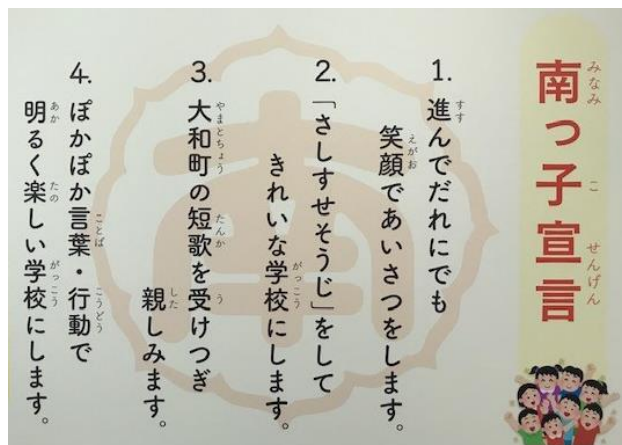 南っ子宣言
1.進んでだれにでも
笑顔であいさつをします。
2.「さしすせそうじ」をして
きれいな学校にします。
3.大和町の短歌を受けつぎ
親しみます。
4.ぽかぽか言葉・行動で
明るく楽しい学校にします。